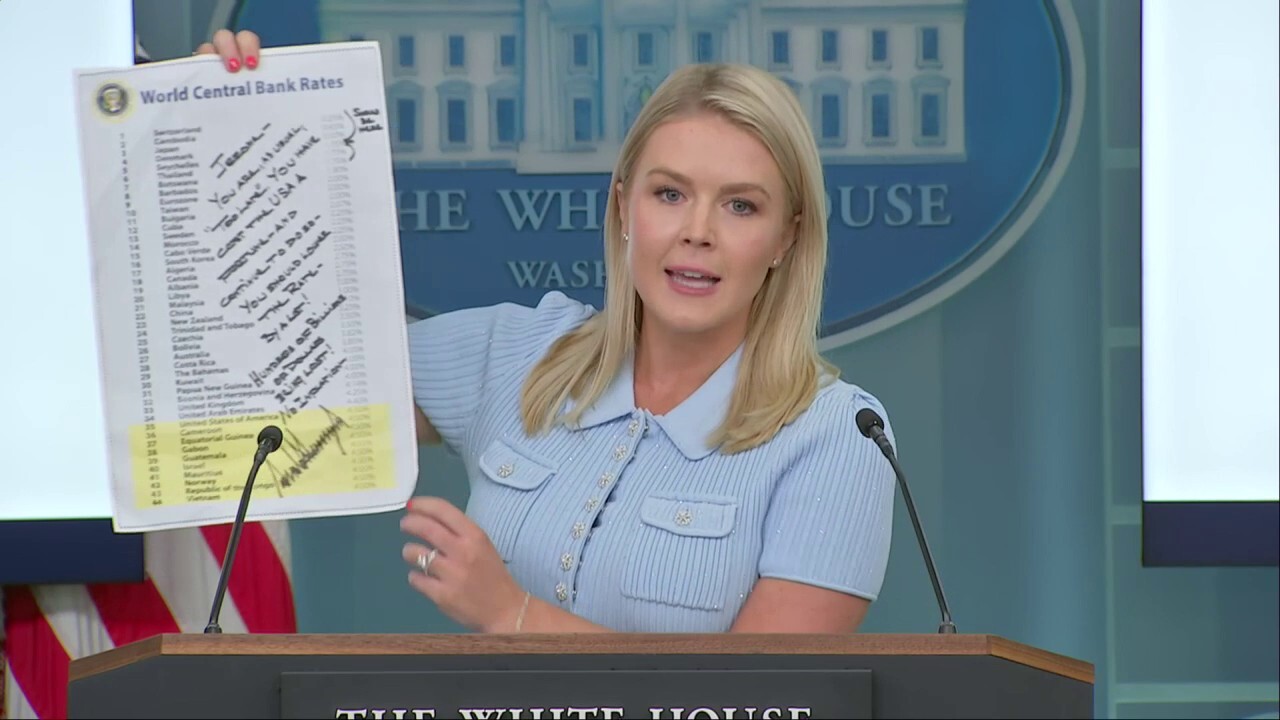 World Central Bank Rates
1 Switzerland
2 Cambodia
3 Japan
4 Denmark
5 Seychelles
6 Thailand
7 Botswana
8 Barbados
9 Eurozone
10 Taiwan
11 Bulgaria
12 Cuba
13 Sweden
14 Morocco
15 Cabo Verde
16 South Korea
17 Algeria
18 Canada
19 Albania
20 Libya
21 Malaysia
22 China
23 New Zealand
24 Trinidad and Tobago
25 Czechia
26 Bolivia
27 Australia
28 Costa Rica
29 The Bahamas
30 Kuwait
31 Papua New Guinea
32 Bosnia and Herzegovina
33 United Kingdom
34 United Arab Emirates
35 United States of America
36 Cameroon
37 Equatorial Guinea
38 Gabon
39 Guatemala
40 Israel
41 Mauritius
42 Norway
43 Republic of the Congo
44 Vietnam
SHOULD
BE
HERE
JEROME —
YOU ARE, AS USUAL,
"TOO LATE." YOU HAVE
COST THE USA A
FORTUNE AND
CONTINUE TO DO SO —
YOU SHOULD LOWER
THE RATE —
BY A LOT!
HUNDREDS OF BILLIONS
OF DOLLARS
BEING LOST!
NO INFLATION
THE WH OUSE
WAS
THE WHITE HOUSE